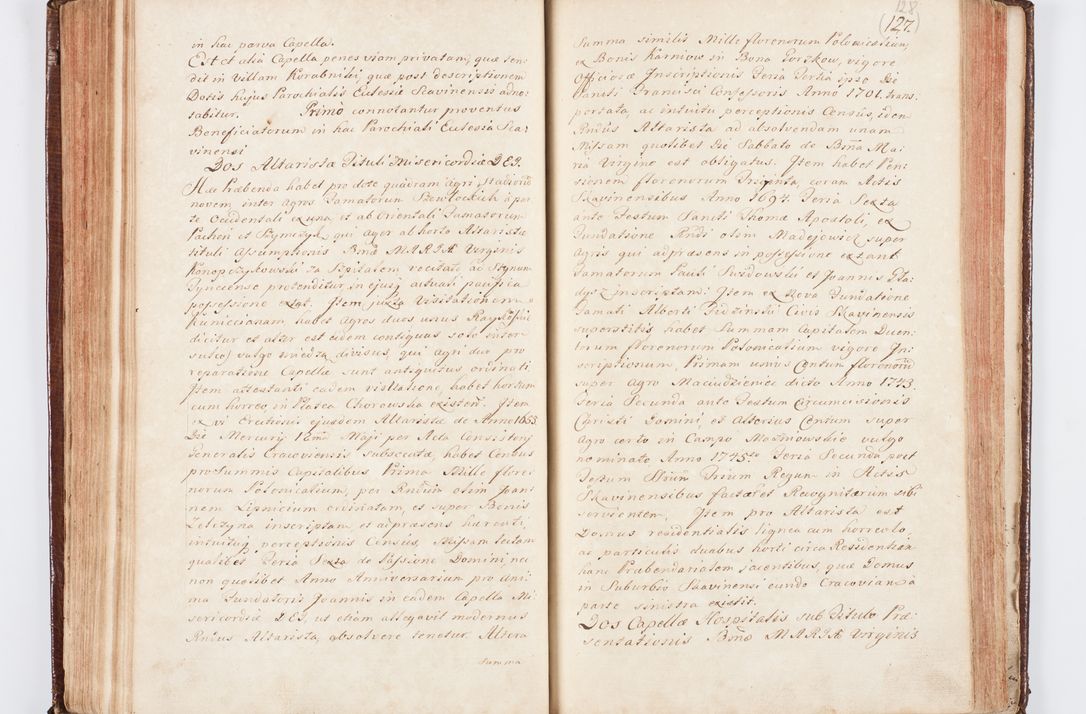 in hac parva Capella.
Est et alia Capella penes viam privatam, quæ ten-
dit in Villam Korabniki, quæ post descriptionem
Dotis hujus Parochialis Ecclesiæ Skavinensis adno-
tabitur. Primo connotantur proventus
Beneficiatorum in hac Parochiali Ecclesia Ska-
vinensi
Dos Altaristæ Tituli Misericordiæ DEI.
Hæc Præbenda habet pro dote quadram agri, stadiorum
novem inter agros Famatorum a par-
te Occidentali ex una et ab Orientali Famatorum
Pachon et Szymczyk qui ager ab horto Altaristæ
tituli Assumptionis Bñæ MARIÆ Virginis
Konopczyskowski za Szpitalem vocitato ad Stagnum
Tynecense protenditur, in ejusq actuali pacifica
possessione extat. Item juxta Visitationem
Kunicianam habet agros duos unus
dicitur et alter est eidem contiguus solo inter
sulco vulgo miedza divisus, qui agri duo pro
reparatione Capellæ sunt antiquitus ordinati.
Item attestanti eadem visitatione, habet hortum
cum horreo, in Platea Chorowska existen. Item
ex vi Erectionis ejusdem Altaristæ de Anno 1653
Die Mercurij 12ma Maji per Acta Consistorij
Generalis Cracoviensis subsecuta, habet Census
pro Summis Capitalibus Prima Mille flore-
norum Polonicalium, per Rndum olim Joan-
nem Lipnicium ordinatam, et super Bonis
Lelezyna inscriptam et adpræsens hærenti,
intuituq perceptionis Census, Missam lectam
qualibet Feria Sexta de Passione Domini, nec
non quolibet Anno Anniversarium pro ani-
ma Fundatoris Joannis in eadem Capella Mi-
sericordiæ DEI, ut etiam allegavit modernus
Rndus Altarista, absolvere tenetur. Altera
Summa
128
(127.)
Summa similis Mille florenorum Polonicalium,
ex Bonis Karniow in Bona Gorzkow, vigore
Officiosæ Inscriptionis Feria Tertia ipso Die
Sancti Francisci Confessoris Anno 1701. trans-
portata, ac intuitu perceptionis Census, idem
Rndus Altarista ad absolvendam unam
Missam quolibet Die Sabbato de Bña Ma-
ria Virgine est obligatus. Item habet Pen-
sionem florenorum Triginta, coram Actis
Skavinensibus Anno 1697. Feria Sexta
ante Festum Sancti Thomæ Apostoli, ex
Fundatione Rndi olim Madejowicz super
agris qui adpræsens in possessione extant
Famatorum Pauli Swidowski et Joannis Gła-
dysz inscriptam: Item ex Nova Fundatione
Famati Alberti Fidzinski Civis Skavinensis
superstitis habet Summam Capitalem Ducen-
torum florenorum Polonicalium vigore In-
scriptionum, Primam unius Centum florenorum
super agro Maciudzience dicto Anno 1743.
Feria Secunda ante Festum Circumcisionis
Christi Domini, et Alterius Centum super
agro certo in Campo Mosznowskie vulgo
nominato Anno 1745to Feria Secunda post
Festum Strum Trium Regum in Actis
Skavinensibus factar et Recognitarum sibi
servientem. Item pro Altarista est
Domus residentialis lignea cum horreolo,
ac particulis duabus horti circa Residentiam
hanc Præbendarialem jacentibus, quæ Domus
in Suburbio Skavinensi eundo Cracoviam a
parte sinistra existit.
Dos Capellæ Hospitalis sub Titulo Præ-
sentationis Bñæ MARIÆ Virginis